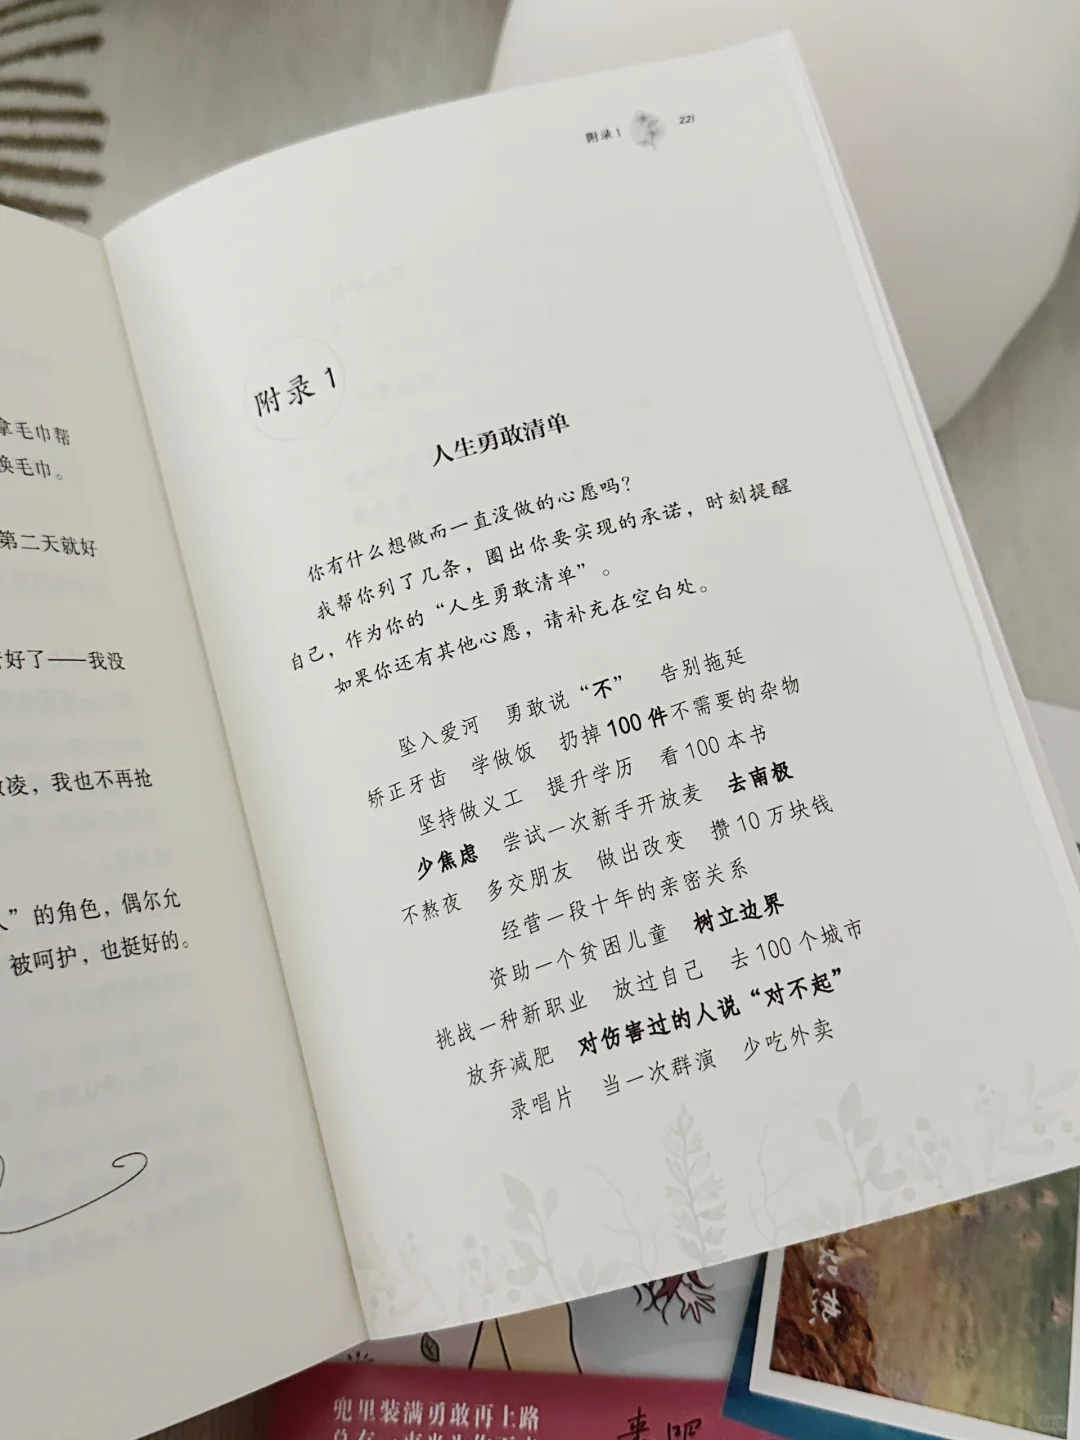 拿毛巾帮
换毛巾。
第二天就好
好了——我没
凌，我也不再抢
”的角色，偶尔允
被呵护，也挺好的。
附录1
221
附录1
人生勇敢清单
你有什么想做而一直没做的心愿吗？
我帮你列了几条，圈出你要实现的承诺，时刻提醒
自己，作为你的“人生勇敢清单”。
如果你还有其他心愿，请补充在空白处。
坠入爱河 勇敢说“不” 告别拖延
矫正牙齿 学做饭 扔掉100件不需要的杂物
坚持做义工 提升学历 看100本书
少焦虑 尝试一次新手开放麦 去南极
不熬夜 多交朋友 做出改变 攒10万块钱
经营一段十年的亲密关系
资助一个贫困儿童 树立边界
挑战一种新职业 放过自己 去100个城市
放弃减肥 对伤害过的人说“对不起”
录唱片 当一次群演 少吃外卖
兜里装满勇敢再上路
来吧